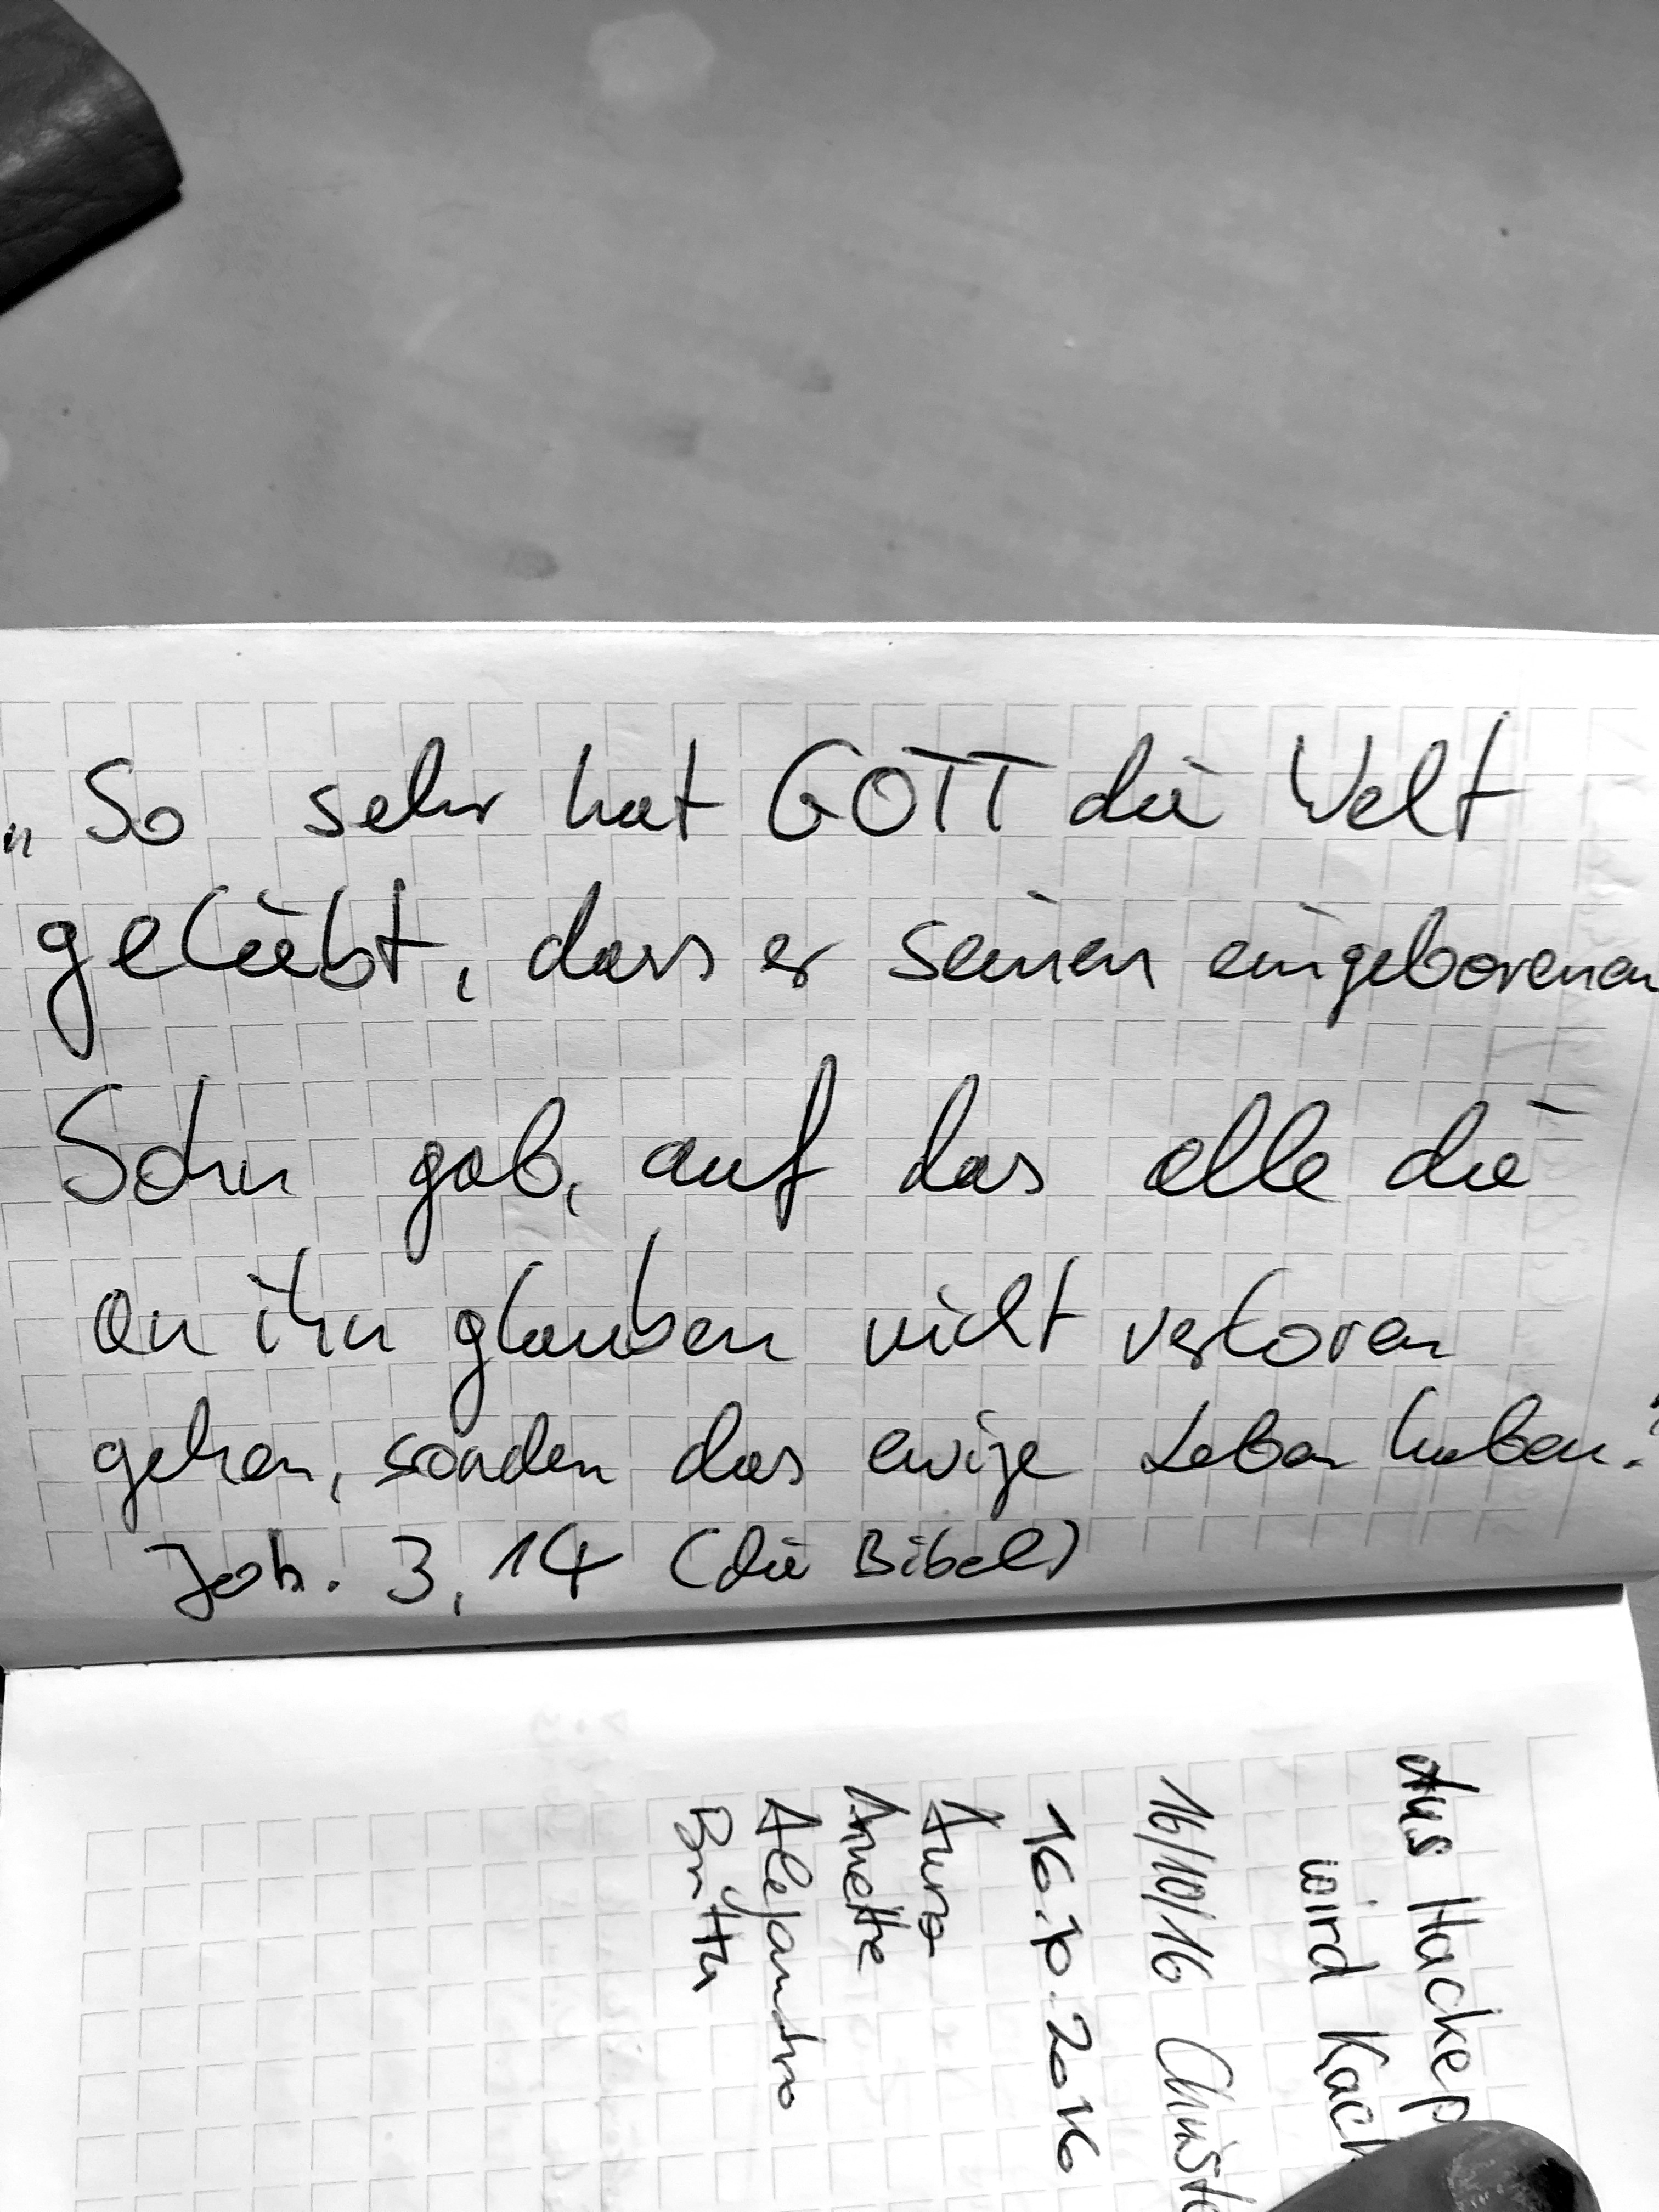 „So sehr hat GOTT die Welt
geliebt, dass er seinen eingeborenen
Sohn gab, auf das alle die
an ihn glauben nicht verloren
gehen, sondern das ewige Leben haben."
Joh. 3, 14 (die Bibel)
Aus Hackep
wird Kack
16/10/16 Christ
16.10.2016
Aura
Annette
Alejandro
Britta